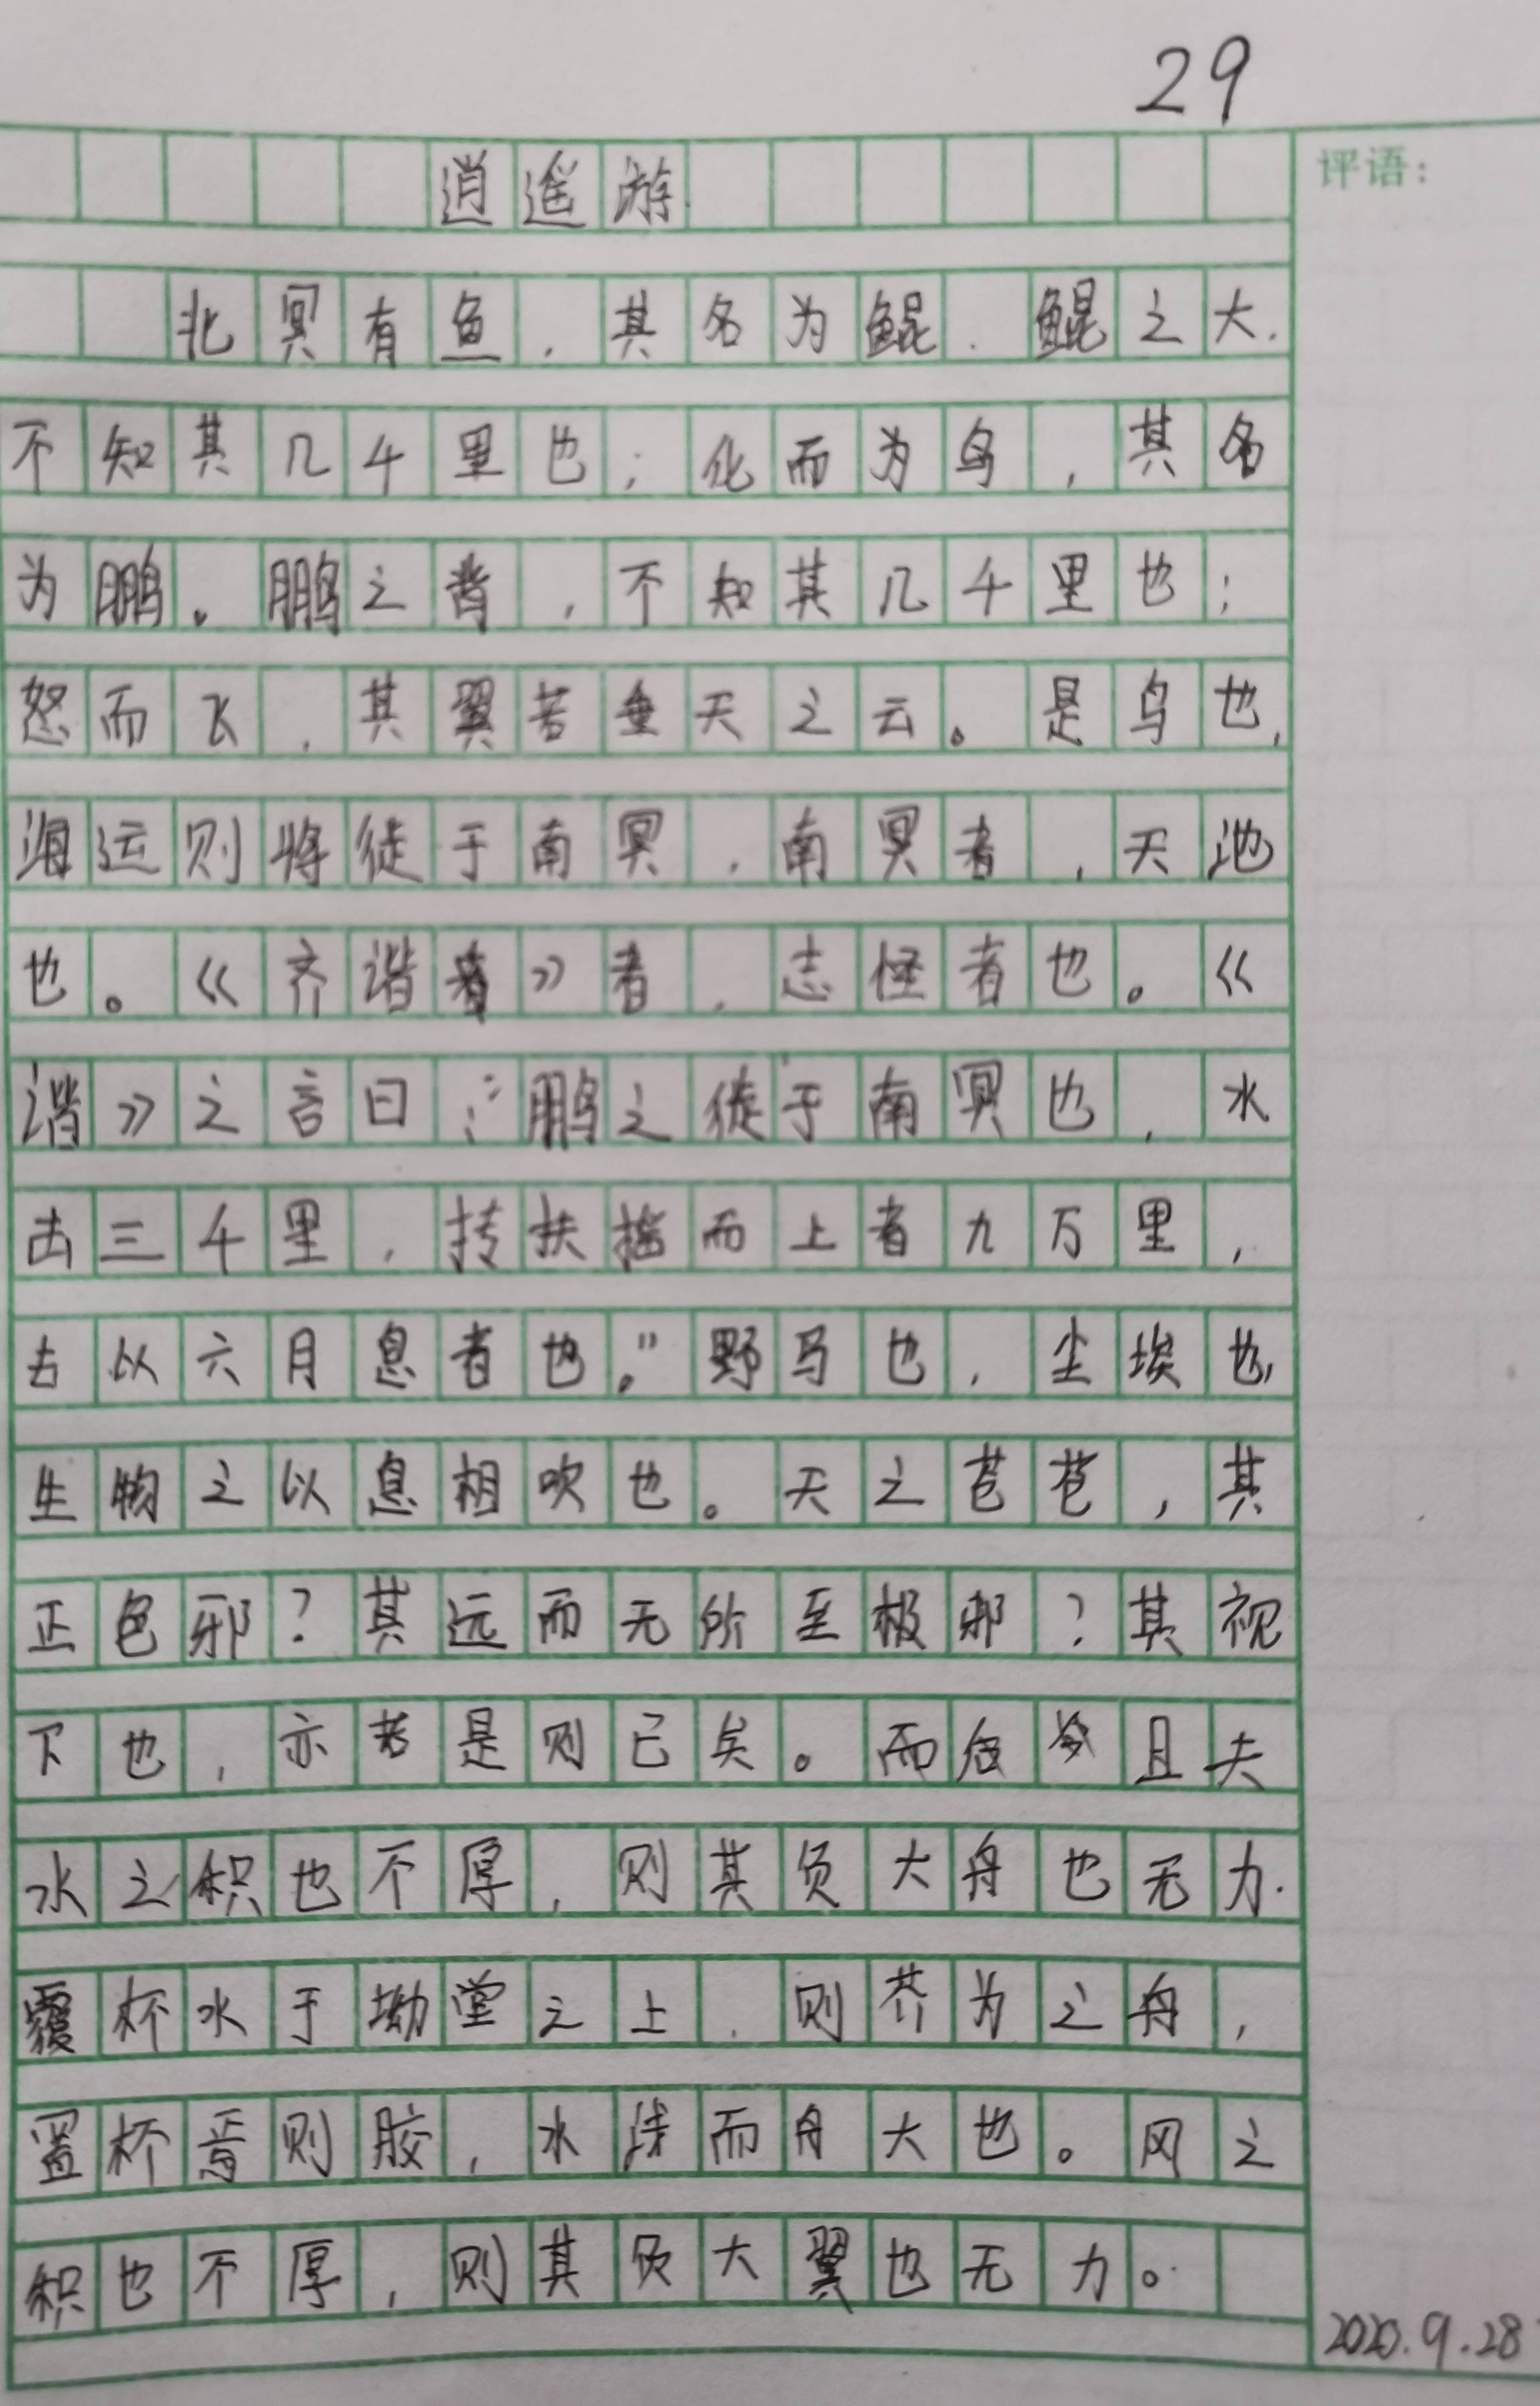 29
逍遥游
评语：
北冥有鱼，其名为鲲．鲲之大．
不知其几千里也；化而为鸟，其名
为鹏。鹏之背，不知其几千里也；
怒而飞，其翼若垂天之云。是鸟也，
海运则将徒于南冥，南冥者，天池
也。《齐谐者》者，志怪者也。《
谐》之言曰：“鹏之徒于南冥也，水
击三千里，抟扶摇而上者九万里，
去以六月息者也。”野马也，尘埃也，
生物之以息相吹也。天之苍苍，其
正色邪？其远而无所至极邪？其视
下也，亦若是则已矣。而后且夫
水之积也不厚，则其负大舟也无力．
覆杯水于坳堂之上，则芥为之舟，
置杯焉则胶，水浅而舟大也。风之
积也不厚，则其负大翼也无力。
2020.9.28